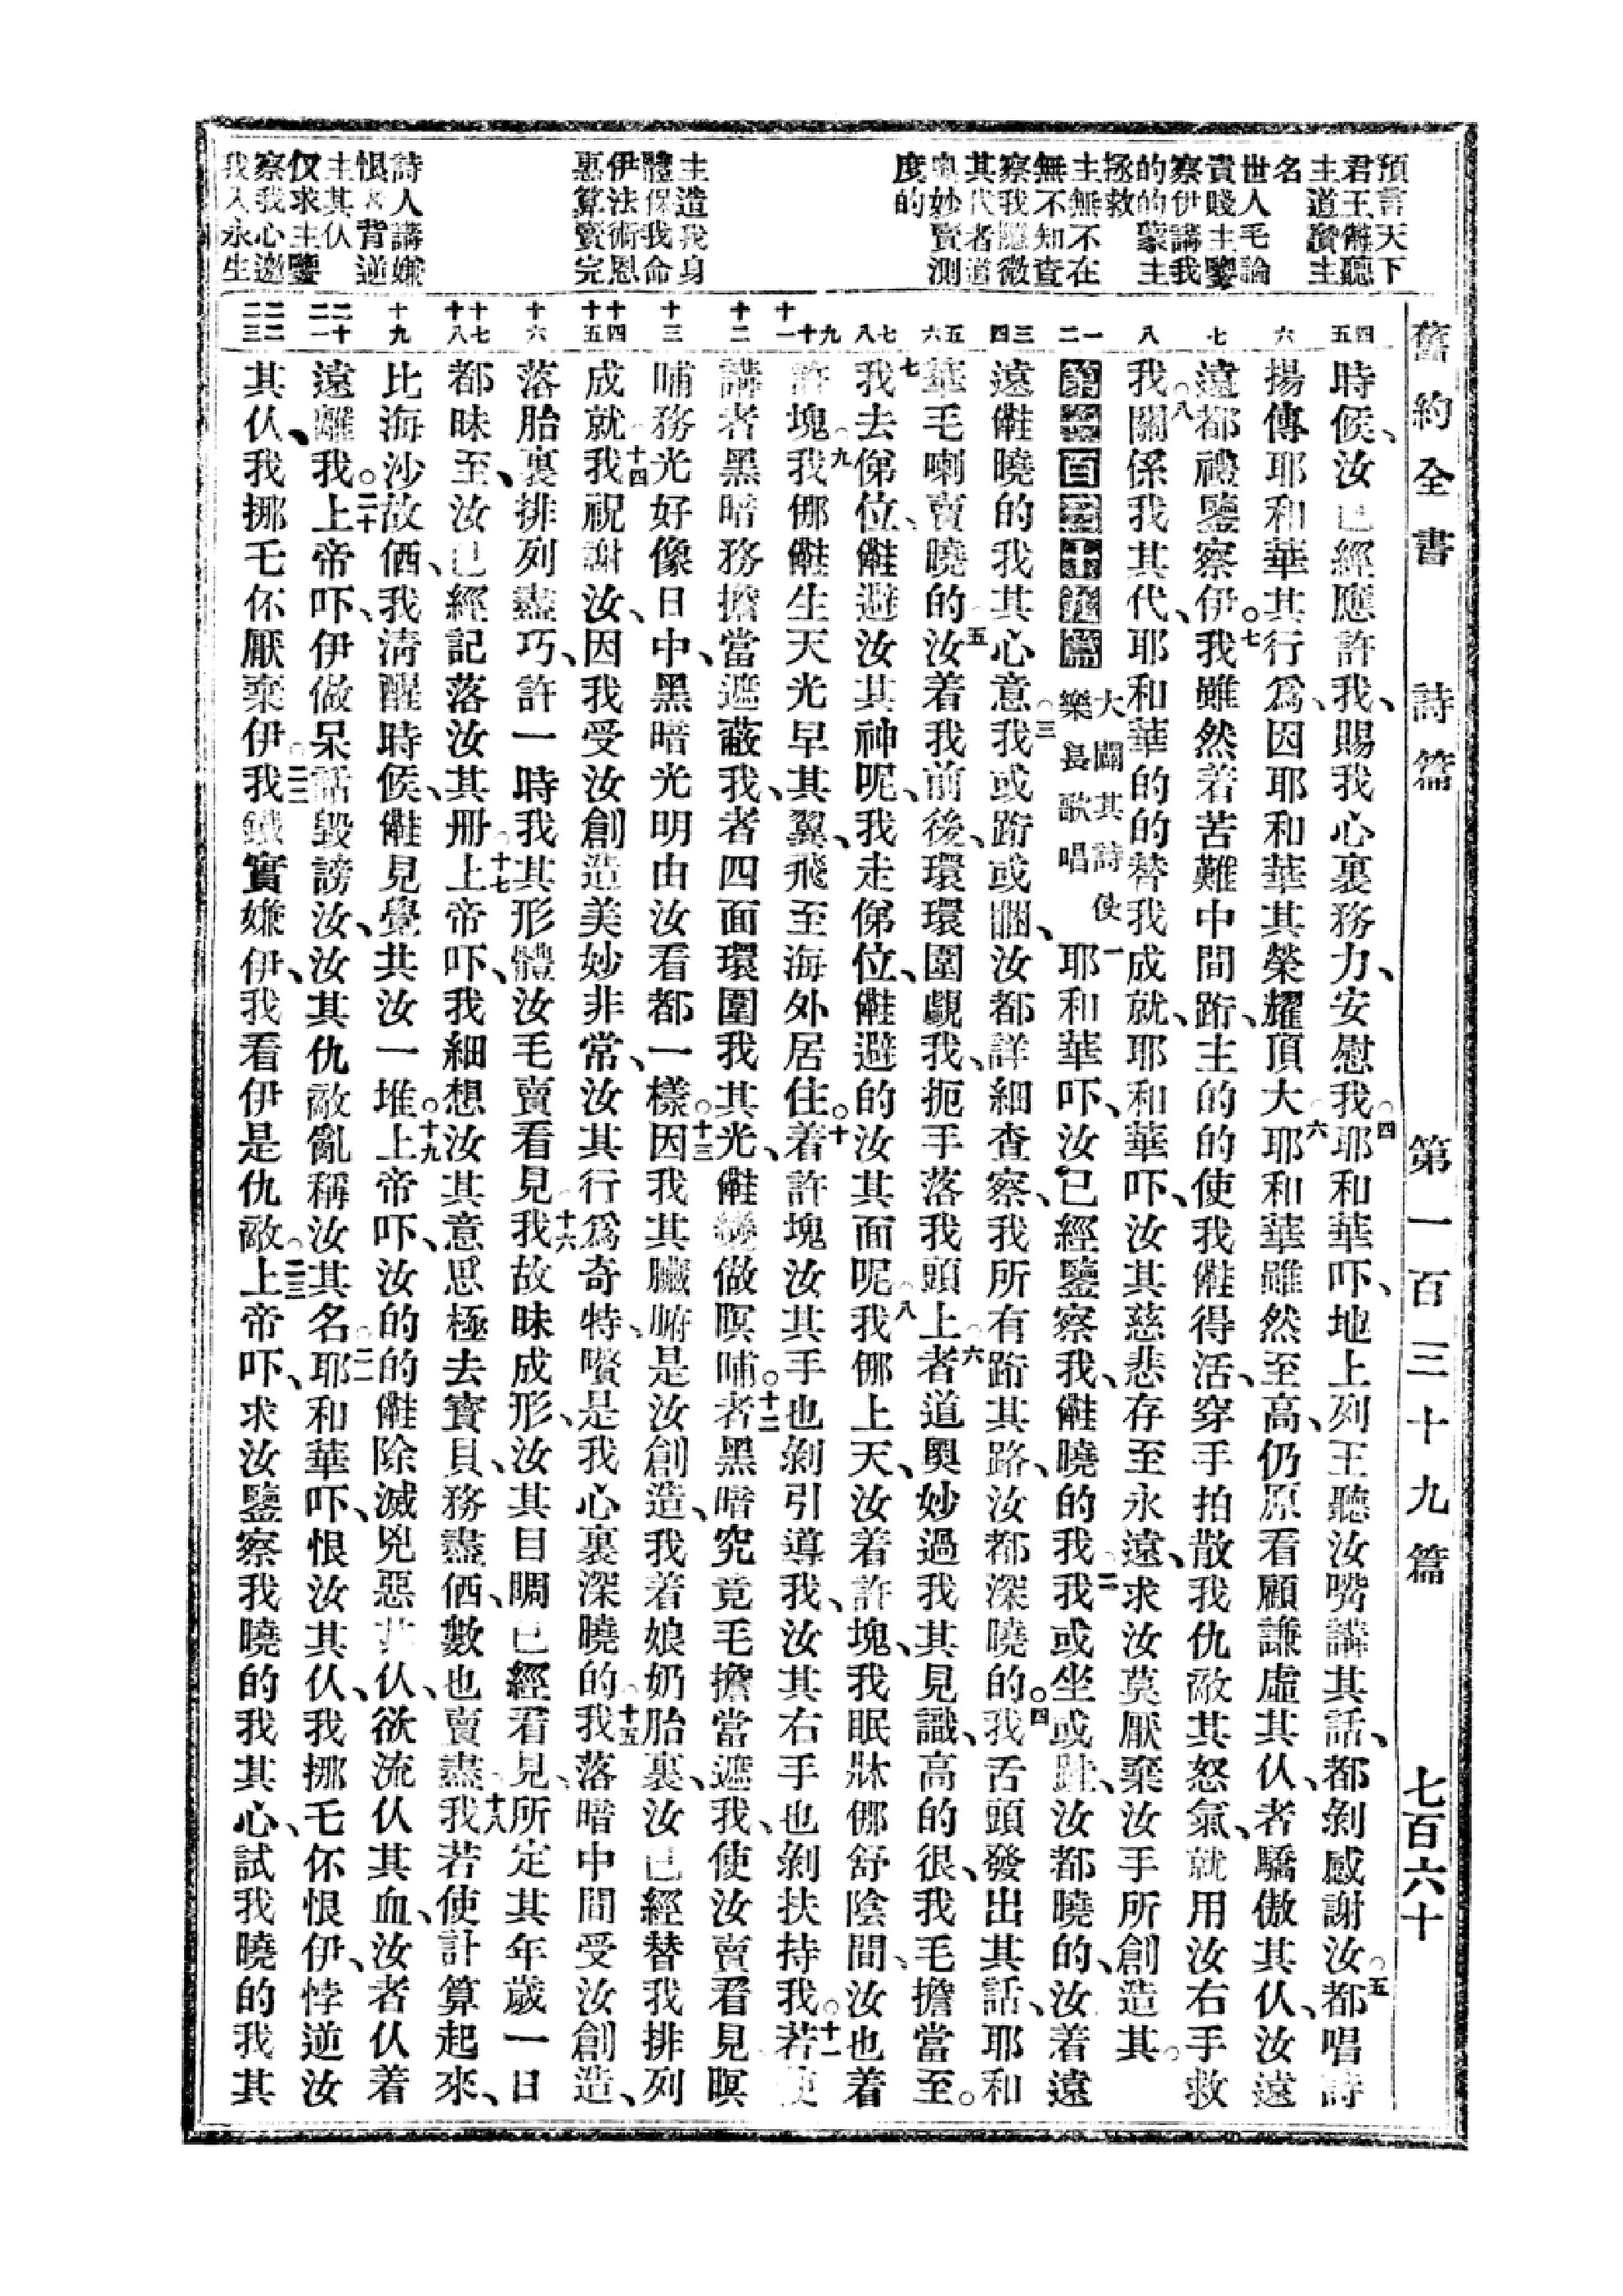 舊約全書 詩篇 第一百三十九篇 七百六十
預言天下
君王儺聽
主道讚主
名
世人毛論
貴賤主鑒
察伊講我
的的蒙主
拯救
主無不在
無不知查
察我隱微
其代者道
奧妙賣測
度的
主造我身
體保我命
伊法術恩
惠算賣完
詩人講嫌
恨 背逆
主其仈
仅求主鑒
察我心遨
我入永生
四 五 六 七 八 一 二 三 四 五 六 七 八 九 十 十一 十二 十三 十四 十五 十六 十七 十八 十九 二十 二一 二二 二三
時候、汝已經應許我、我賜我心裏務力、安慰我。四耶和華吓、地上列王聽汝嘴講其話、都剝感謝汝。五都唱詩
揚傳耶和華其行爲、因耶和華其榮耀頂大。六耶和華雖然至高、仍原看顧謙虛其仈、者驕傲其仈、汝遠
遠都禮鑒察伊。七我雖然着苦難中間跻、主的的使我儺得活、穿手拍散我仇敵其怒氣、就用汝右手救
我。八關係我其代、耶和華的的替我成就、耶和華吓、汝其慈悲、存至永遠、求汝莫厭棄汝手所創造其。
第一百三十九篇 大闢其詩使樂長歌唱 一耶和華吓、汝已經鑒察我、儺曉的我。二我或坐或跬、汝都曉的、汝着遠
遠儺曉的我其心意。三我或跻或睏、汝都詳細查察、我所有跻其路、汝都深曉的。四我舌頭發出其話、耶和
華毛喇賣曉的。五汝着我前後、環環圍覷我、扼手落我頭上。六者道奧妙過我其見識、高的很、我毛擔當至。
七我去俤位、儺避汝其神呢、我走俤位、儺避的汝其面呢。八我倻上天、汝着許塊、我眠牀倻舒陰間、汝也着
許塊。九我倻儺生天光早其翼、飛至海外居住。十着許塊汝其手也剝引導我、汝其右手也剝扶持我。十一若使
講者黑暗務擔當遮蔽我、者四面環圍我其光、儺變做暝哺。十二者黑暗究竟毛擔當遮我、使汝賣看見暝
哺務光好像日中、黑暗光明由汝看都一樣。十三因我其臟腑是汝創造、我着娘奶胎裏、汝已經替我排列
成就。十四我祝謝汝、因我受汝創造美妙非常、汝其行爲奇特、嘤是我心裏深曉的。十五我落暗中間受汝創造、
落胎裏排列盡巧、許一時我其形體汝毛賣看見。十六我故昧成形、汝其目睭已經看見、所定其年歲一日
都昧至、汝已經記落汝其冊。十七上帝吓、我細想汝其意思極去寶貝、務盡価、數也賣盡。十八我若使計算起來、
比海沙故価、我清醒時候、儺見覺共汝一堆。十九上帝吓、汝的的儺除滅兇惡其仈、欲流仈其血、汝者仈着
遠離我。二十上帝吓、伊做呆話毀謗汝、汝其仇敵亂稱汝其名。二一耶和華吓、恨汝其仈、我挪毛伓恨伊、悖逆汝
其仈、我挪毛伓厭棄伊。二二我誠實嫌伊、我看伊是仇敵。二三上帝吓、求汝鑒察我曉的我其心、試我曉的我其